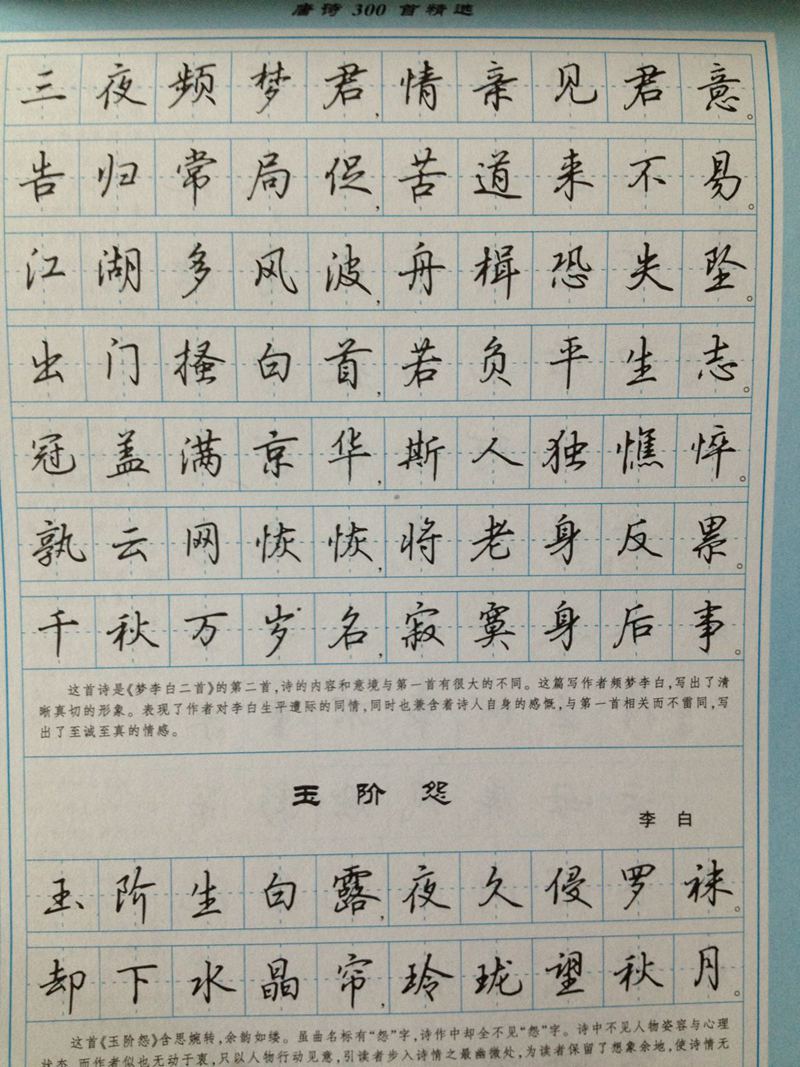 唐诗 300 首精选
三夜频梦君，情亲见君意。
告归常局促，苦道来不易。
江湖多风波，舟楫恐失坠。
出门搔白首，若负平生志。
冠盖满京华，斯人独憔悴。
孰云网恢恢，将老身反累。
千秋万岁名，寂寞身后事。
这首诗是《梦李白二首》的第二首，诗的内容和意境与第一首有很大的不同。这篇写作者频梦李白，写出了清
晰真切的形象。表现了作者对李白生平遭际的同情，同时也兼含着诗人自身的感慨，与第一首相关而不雷同，写
出了至诚至真的情感。
玉阶怨
李白
玉阶生白露，夜久侵罗袜。
却下水晶帘，玲珑望秋月。
这首《玉阶怨》含思婉转，余韵如缕。虽曲名标有“怨”字，诗作中却全不见“怨”字。诗中不见人物姿容与心理
状态，而作者似也无动于衷，只以人物行动见意，引读者步入诗情之最幽微处，为读者保留了想象余地，使诗情无